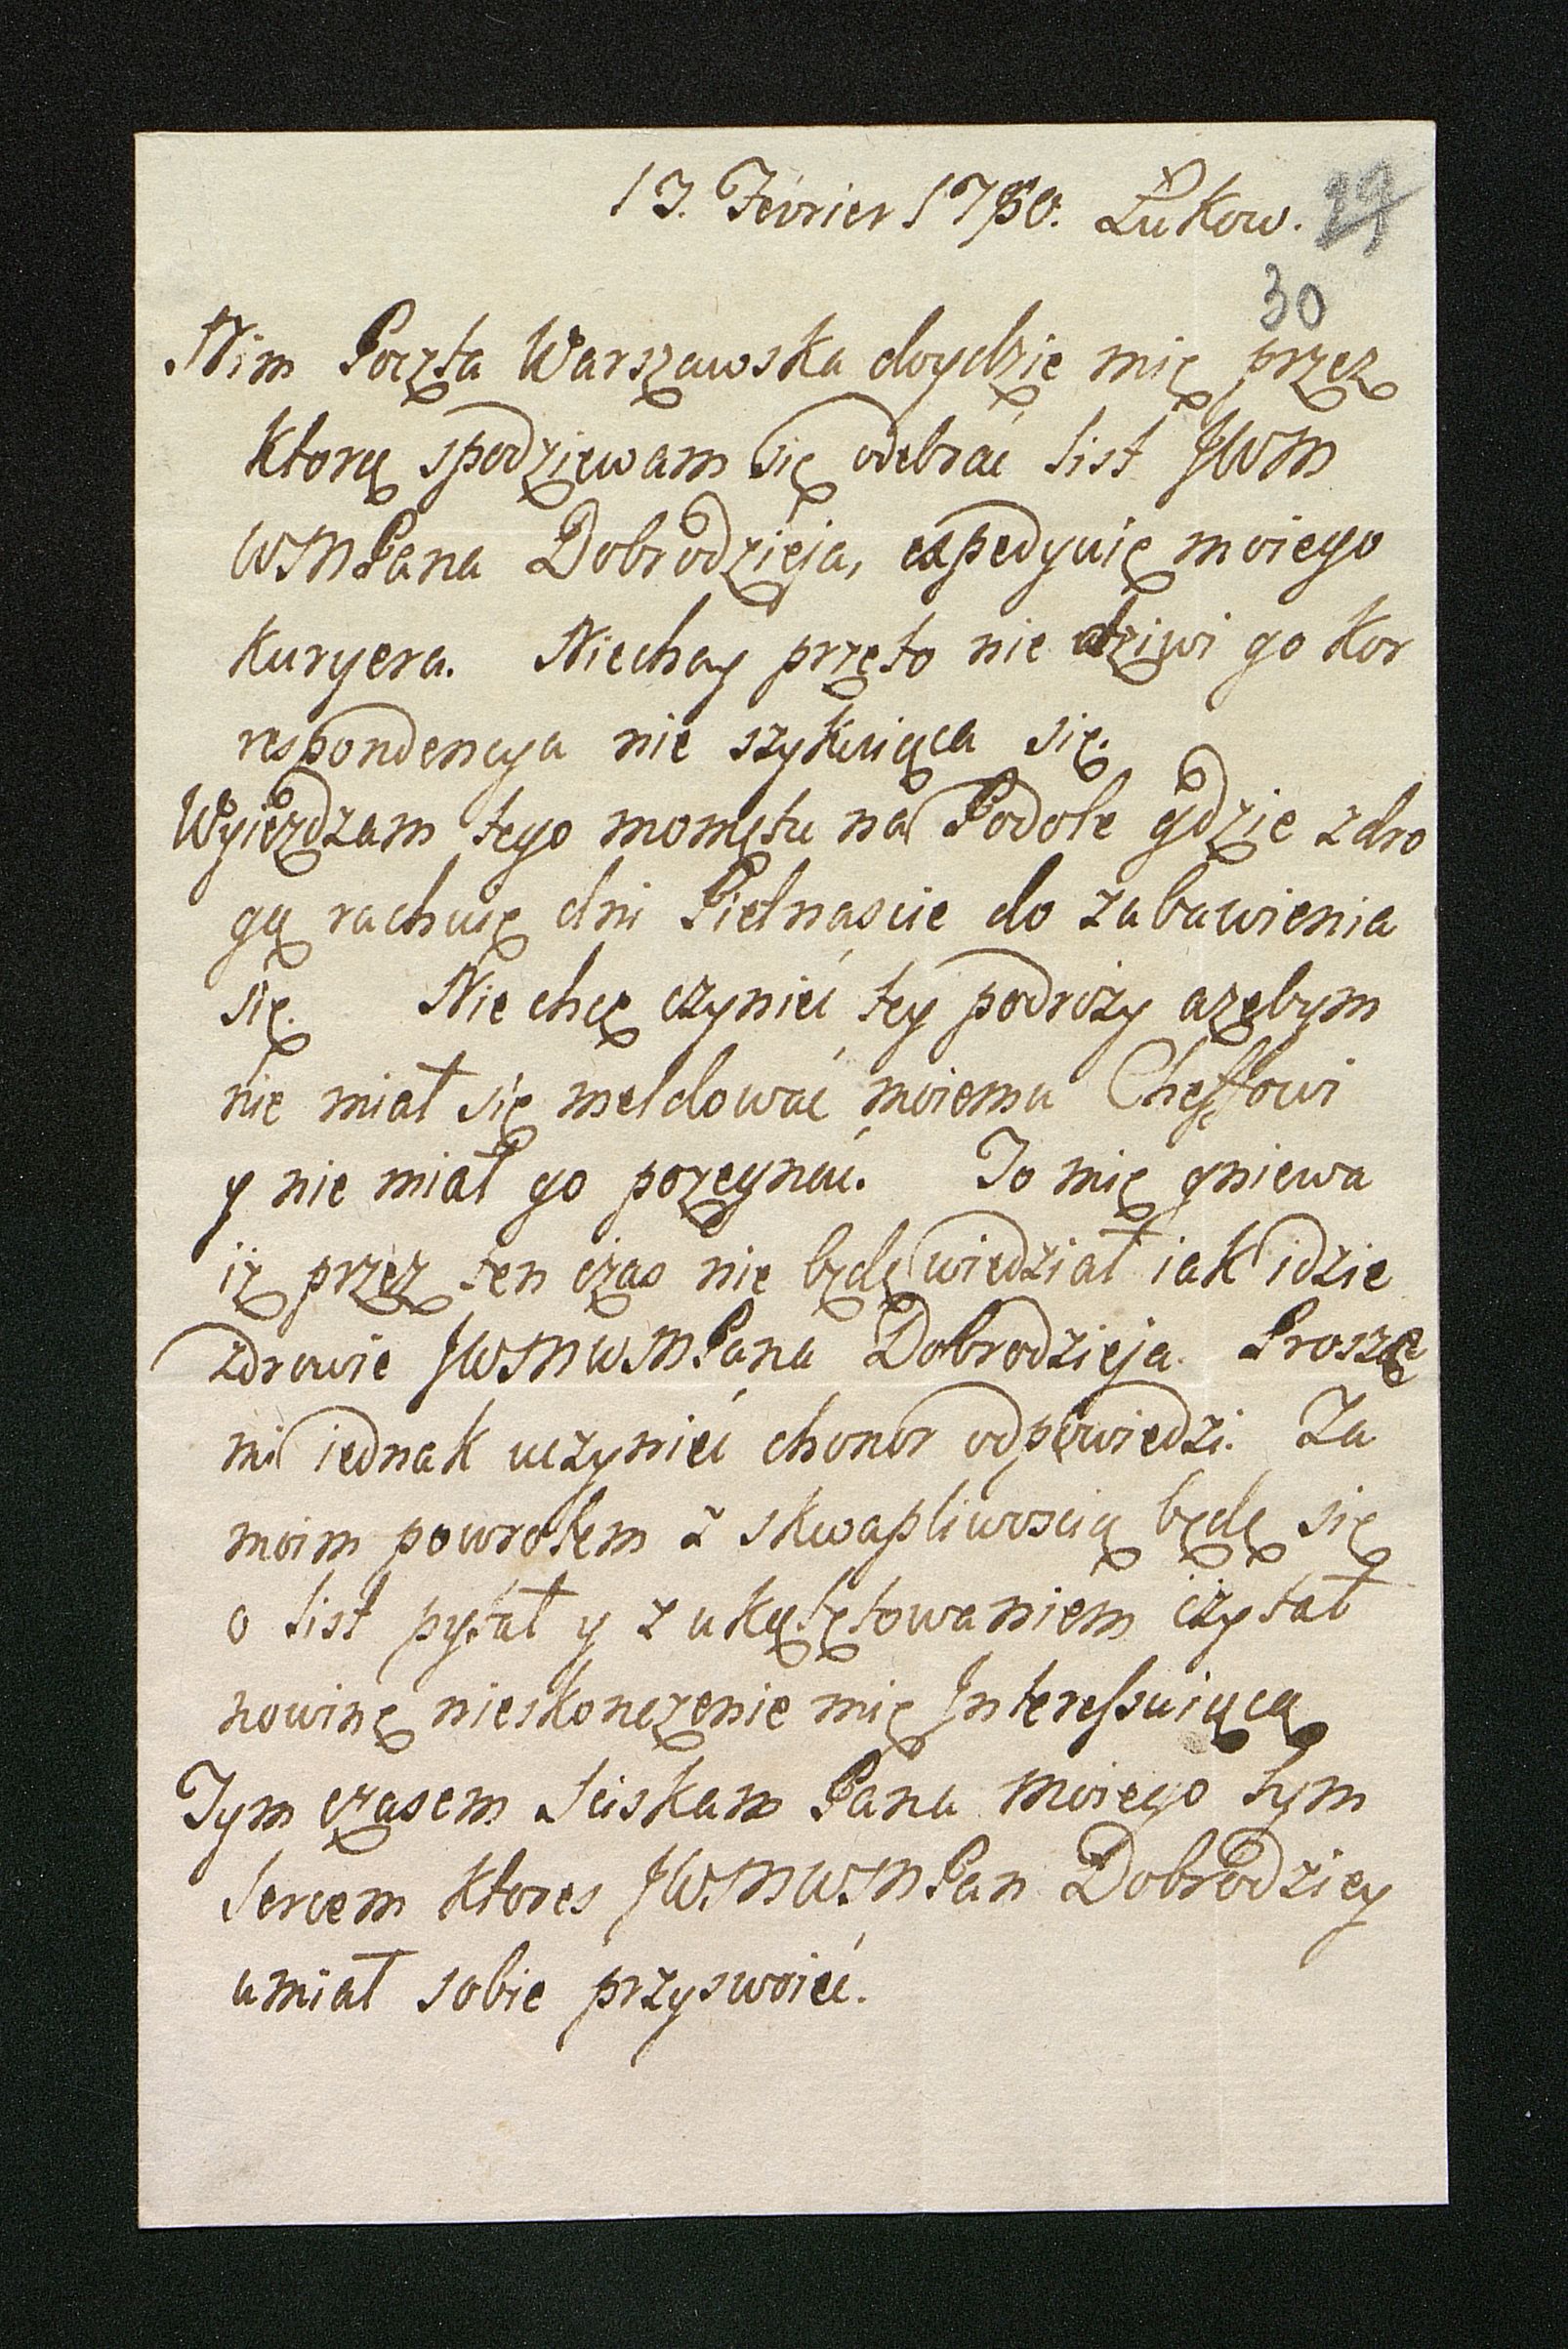 13. Fevrier 1780. Łukow. 29
30
Nim Poczta Warszawska doydzie mię przez
ktorą spodziewam się odebrać list JWM
WMPana Dobrodzieja, expedyuię moiego
kuryera. Niechay przeto nie dziwi go kor
respondencya nie szykuiąca się.
Wyieżdzam tego momętu na Podole gdzie z dro
gą rachuię dni Pietnascie do zabawienia
się. Nie chcę czynieć tey podroży ażebym
nie miał się meldować moiemu Cheffowi
y nie miał go pożegnać. To mię gniewa
iż przez ten czas nie będę wiedział iak idzie
zdrowie JWMWMPana Dobrodzieja. Proszę
mi iednak uczynieć chonor odpowiedzi. Za
moim powrotem z skwapliwoscią będę się
o list pytał y z ukątętowaniem czytał
nowinę nieskonczenie mię Interessuiącą
Tym czasem sciskam Pana moiego tym
sercem ktores JWMWMPan Dobrodziey
umiał sobie przyswoieć.